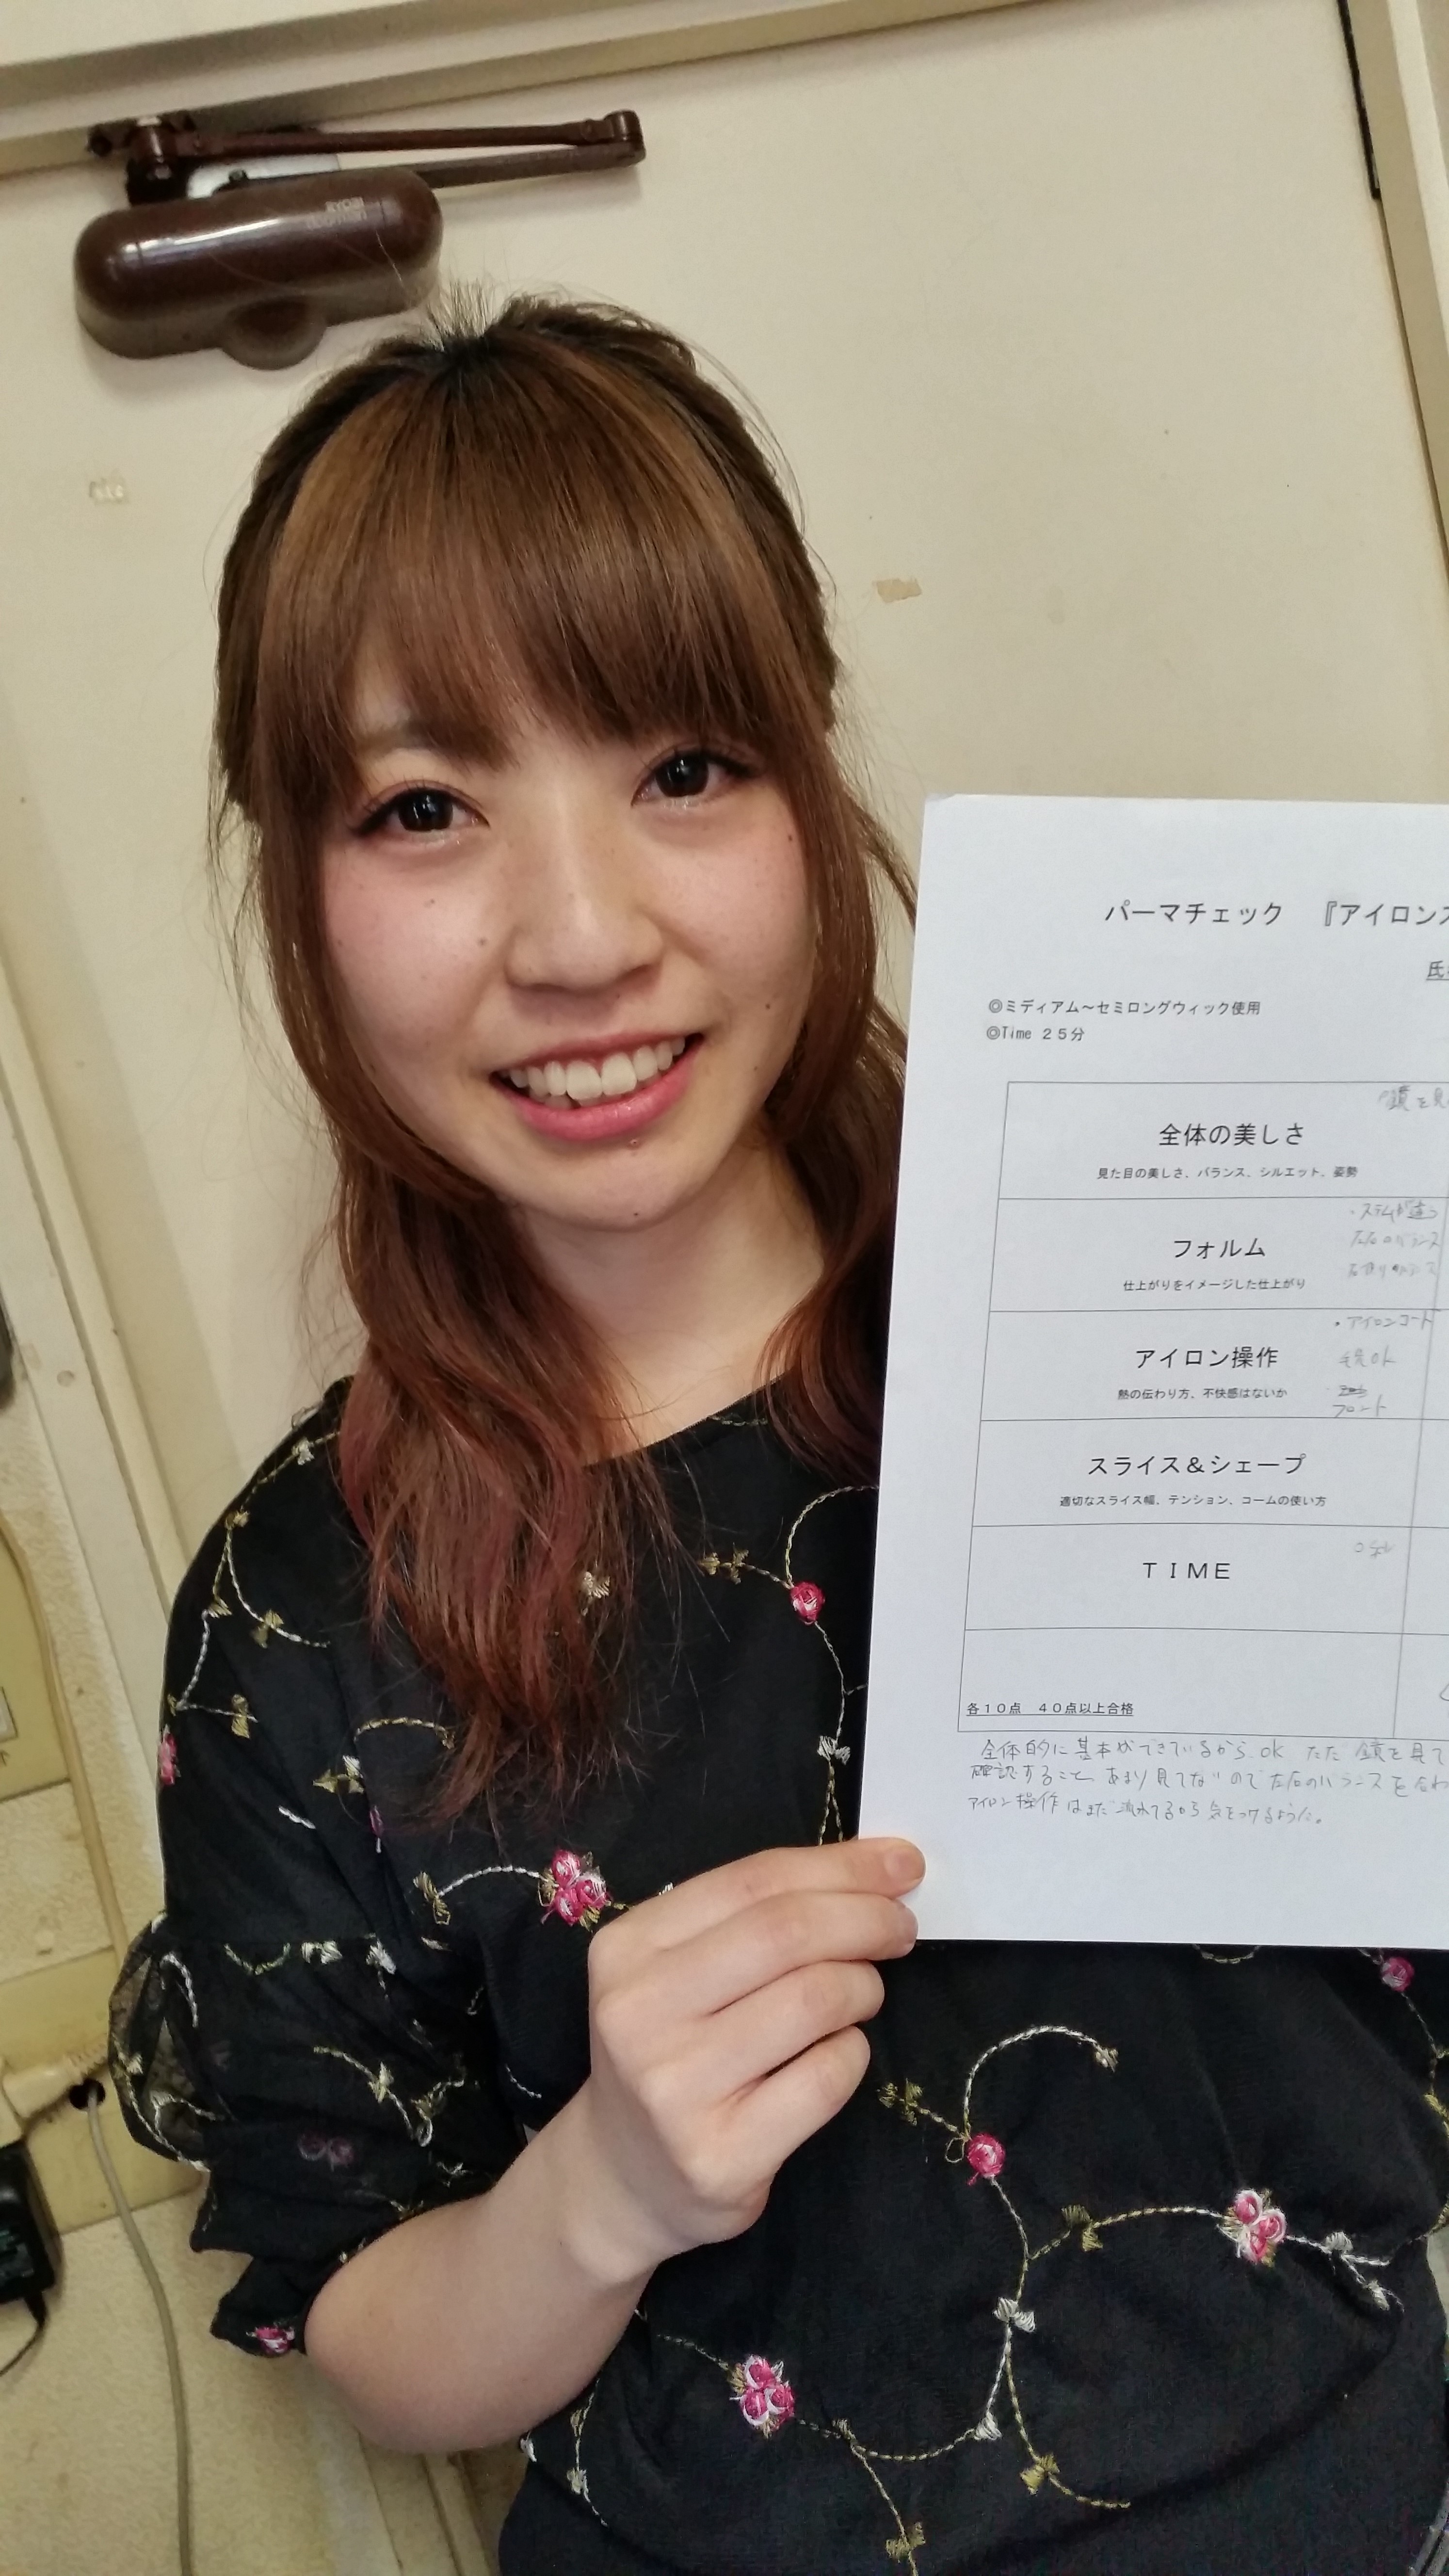 RYOBI
パーマチェック 『アイロンス
氏
◎ミディアム～セミロングウィック使用
◎Time 25分
鏡を見
全体の美しさ
見た目の美しさ、バランス、シルエット、姿勢
・ステムが違う
左右のバランス
フォルム
仕上がりをイメージした仕上がり
・アイロンコート
アイロン操作
毛先ok
熱の伝わり方、不快感はないか
フロント
スライス＆シェープ
適切なスライス幅、テンション、コームの使い方
TIME
0秒
各10点 40点以上合格
全体的に基本ができているから、ok ただ 鏡を見て
確認すること、あまり見てないので左右のバランスを合わ
アイロン操作はまだ 流れてるから気をつけるように。